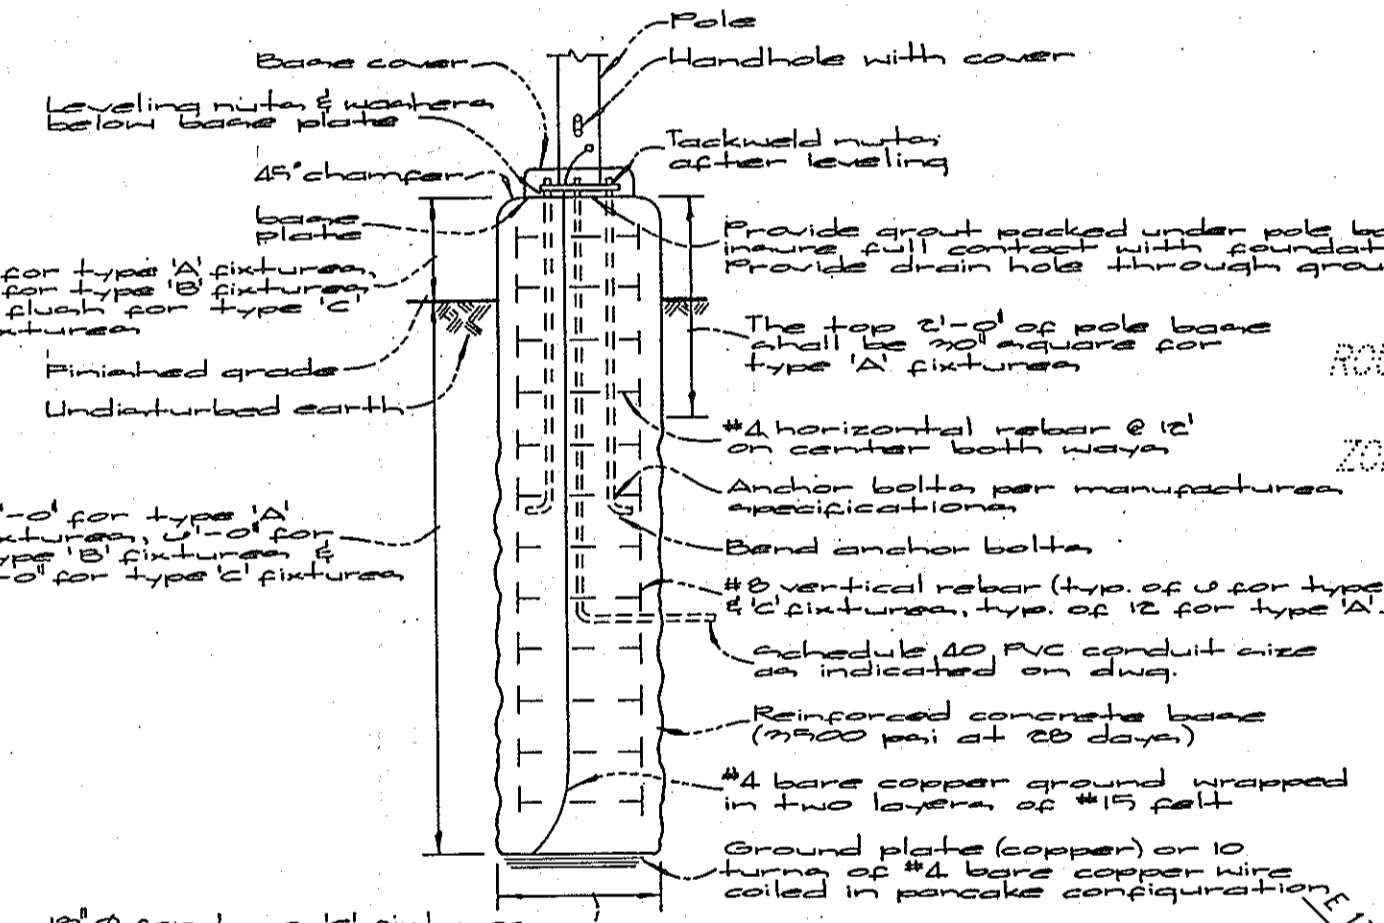 Pole
Base cover
Handhole with cover
Leveling nuts & washers
below base plate
Tackweld nuts
after leveling
45° chamfer
base
plate
Provide grout packed under pole
insure full contact with
Provide drain hole through
for type 'A' fixtures,
for type 'B' fixtures
flush for type 'C'
The top 2'-0" of pole base
shall be 30" square for
type 'A' fixtures
Finished grade
Undisturbed earth
#4 horizontal rebar @ 12"
on center both ways
Anchor bolts per manufactures
specifications
'-0" for type 'A'
6'-0" for
type 'B' fixtures &
-0" for type 'C' fixtures
Bend anchor bolts
#8 vertical rebar (typ. of 6 for type
& 'C' fixtures, typ. of 12 for type 'A'.
schedule 40 PVC conduit size
as indicated on dwg.
Reinforced concrete base
(3500 psi at 28 days)
#4 bare copper ground wrapped
in two layers of #15 felt
Ground plate (copper) or 10
turns of #4 bare copper wire
coiled in pancake configuration